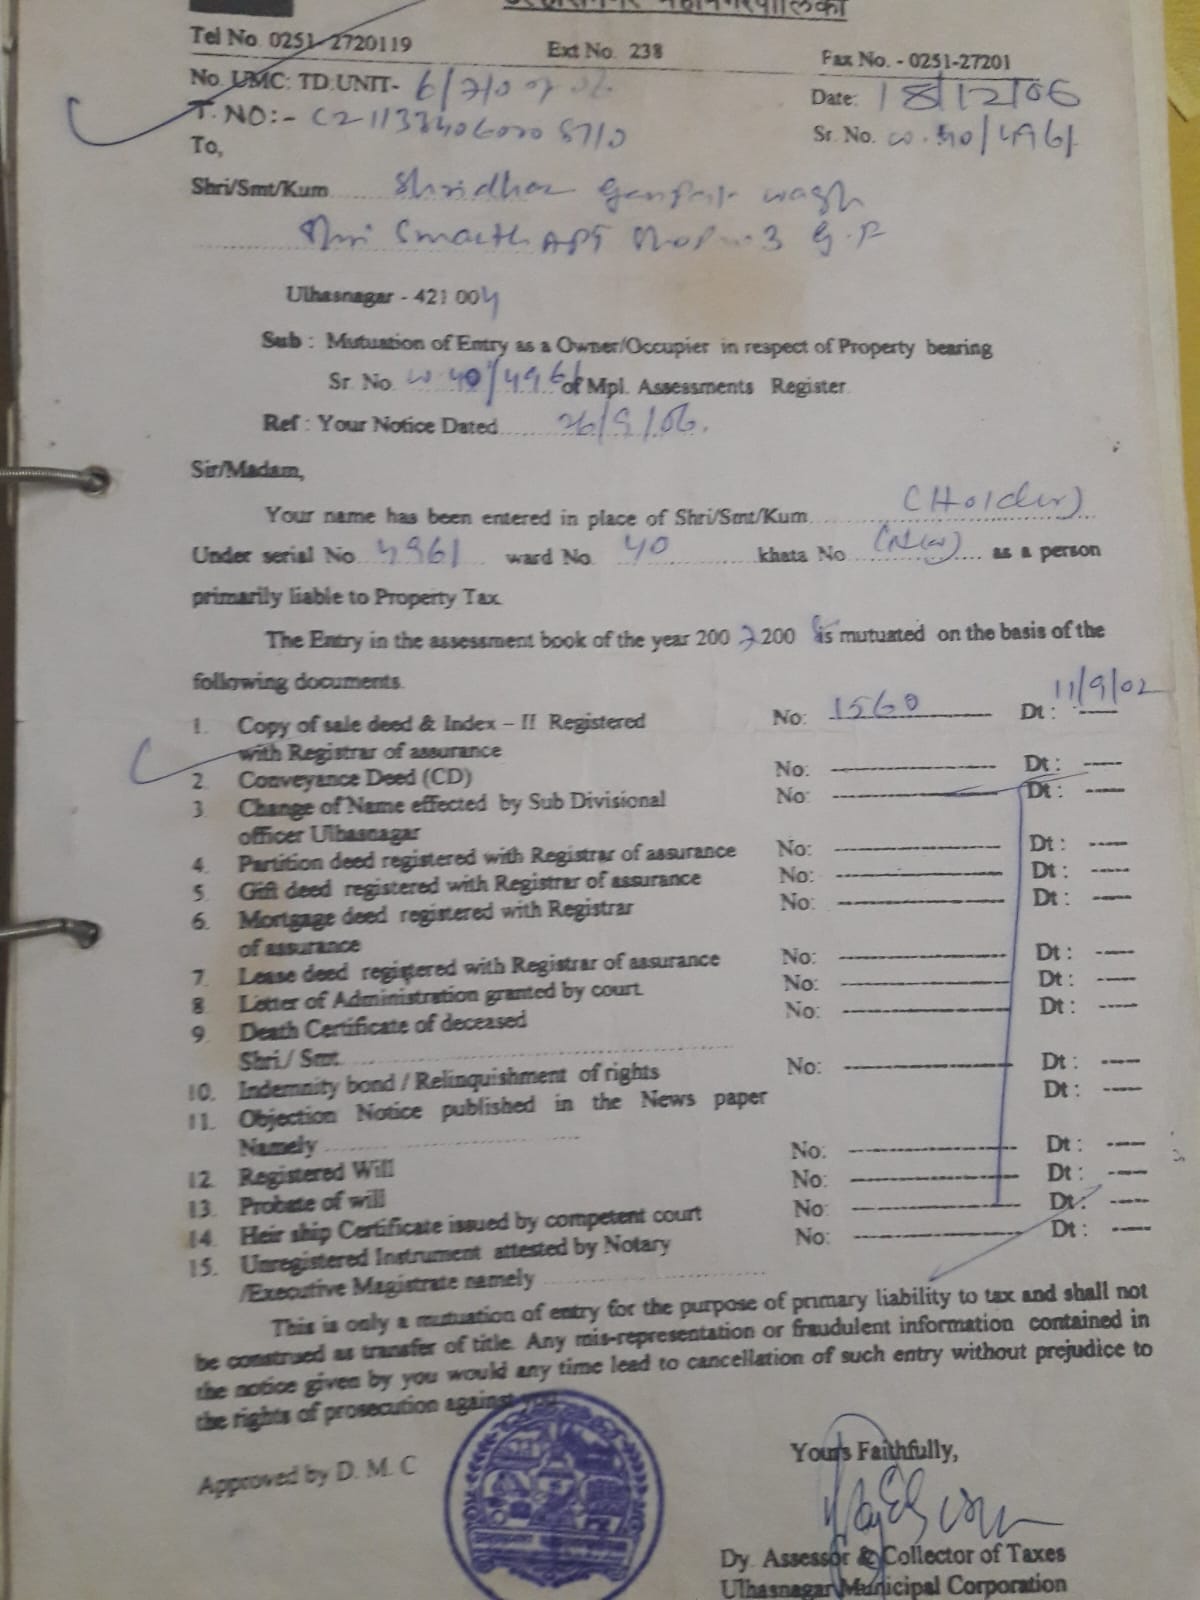 उल्हासनगर महानगरपालिका
Tel No. 0251-2720119 Ext No. 238 Fax No. - 0251-27201
No. UMC: TD:UNIT- Date: 18/12/06
T. NO:- Sr. No.
To,
Shri/Smt/Kum Shridhar Ganpat Wagh
APT 3 G.F
Ulhasnagar - 421 004
Sub : Mutuation of Entry as a Owner/Occupier in respect of Property bearing
Sr. No. w 40/4961 of Mpl. Assessments Register.
Ref : Your Notice Dated 26/9/06.
Sir/Madam,
Your name has been entered in place of Shri/Smt/Kum (Holder)
Under serial No. 4961 ward No. 40 khata No (New) as a person
primarily liable to Property Tax.
The Entry in the assessment book of the year 200 200 is mutuated on the basis of the
following documents.
1. Copy of sale deed & Index – II Registered No: 1560 Dt : 11/9/02
with Registrar of assurance
2. Conveyance Deed (CD) No: Dt :
3. Change of Name effected by Sub Divisional No: Dt :
officer Ulhasnagar
4. Partition deed registered with Registrar of assurance No: Dt :
5. Gift deed registered with Registrar of assurance No: Dt :
6. Mortgage deed registered with Registrar No: Dt :
of assurance
7. Lease deed registered with Registrar of assurance No: Dt :
8. Letter of Administration granted by court. No: Dt :
9. Death Certificate of deceased No: Dt :
Shri./ Smt.
10. Indemnity bond / Relinquishment of rights No: Dt :
11. Objection Notice published in the News paper Dt :
Namely
12. Registered Will No: Dt :
13. Probate of will No: Dt :
14. Heir ship Certificate issued by competent court No: Dt :
15. Unregistered Instrument attested by Notary No: Dt :
/Executive Magistrate namely
This is only a mutuation of entry for the purpose of primary liability to tax and shall not
be construed as transfer of title. Any mis-representation or fraudulent information contained in
the notice given by you would any time lead to cancellation of such entry without prejudice to
the rights of prosecution against
Yours Faithfully,
Approved by D. M. C
Dy. Assessor & Collector of Taxes
Ulhasnagar Municipal Corporation